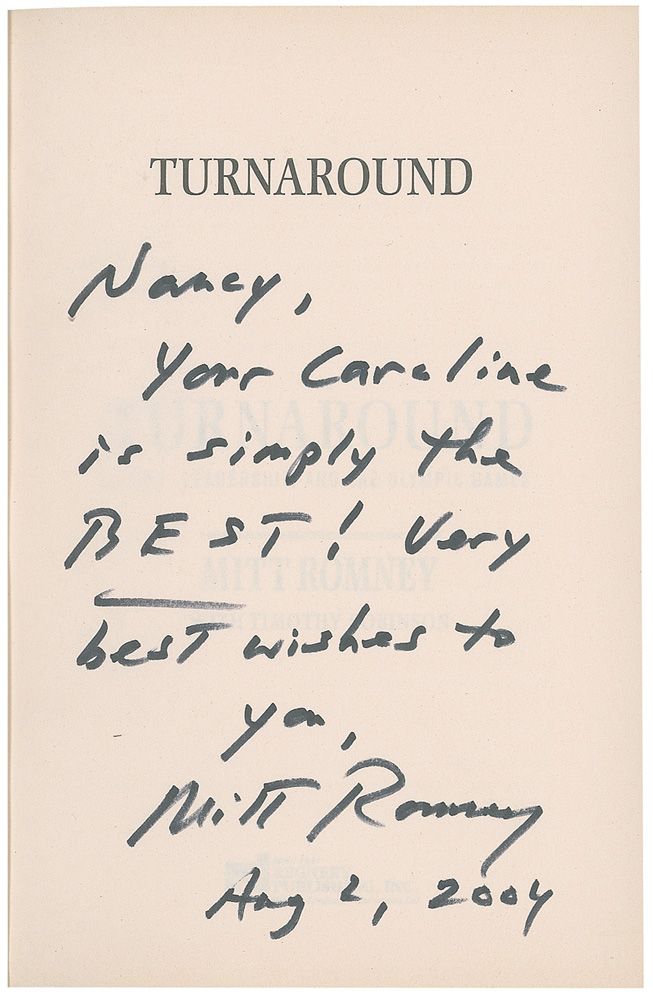 TURNAROUND
Nancy,
Your Caroline
is simply the
BEST! Very
best wishes to
you,
Mitt Romney
Aug 2, 2004
TURNAROUND
LEADERSHIP AND THE OLYMPIC GAMES
MITT ROMNEY
WITH TIMOTHY ROBINSON
REGNERY
PUBLISHING, INC.